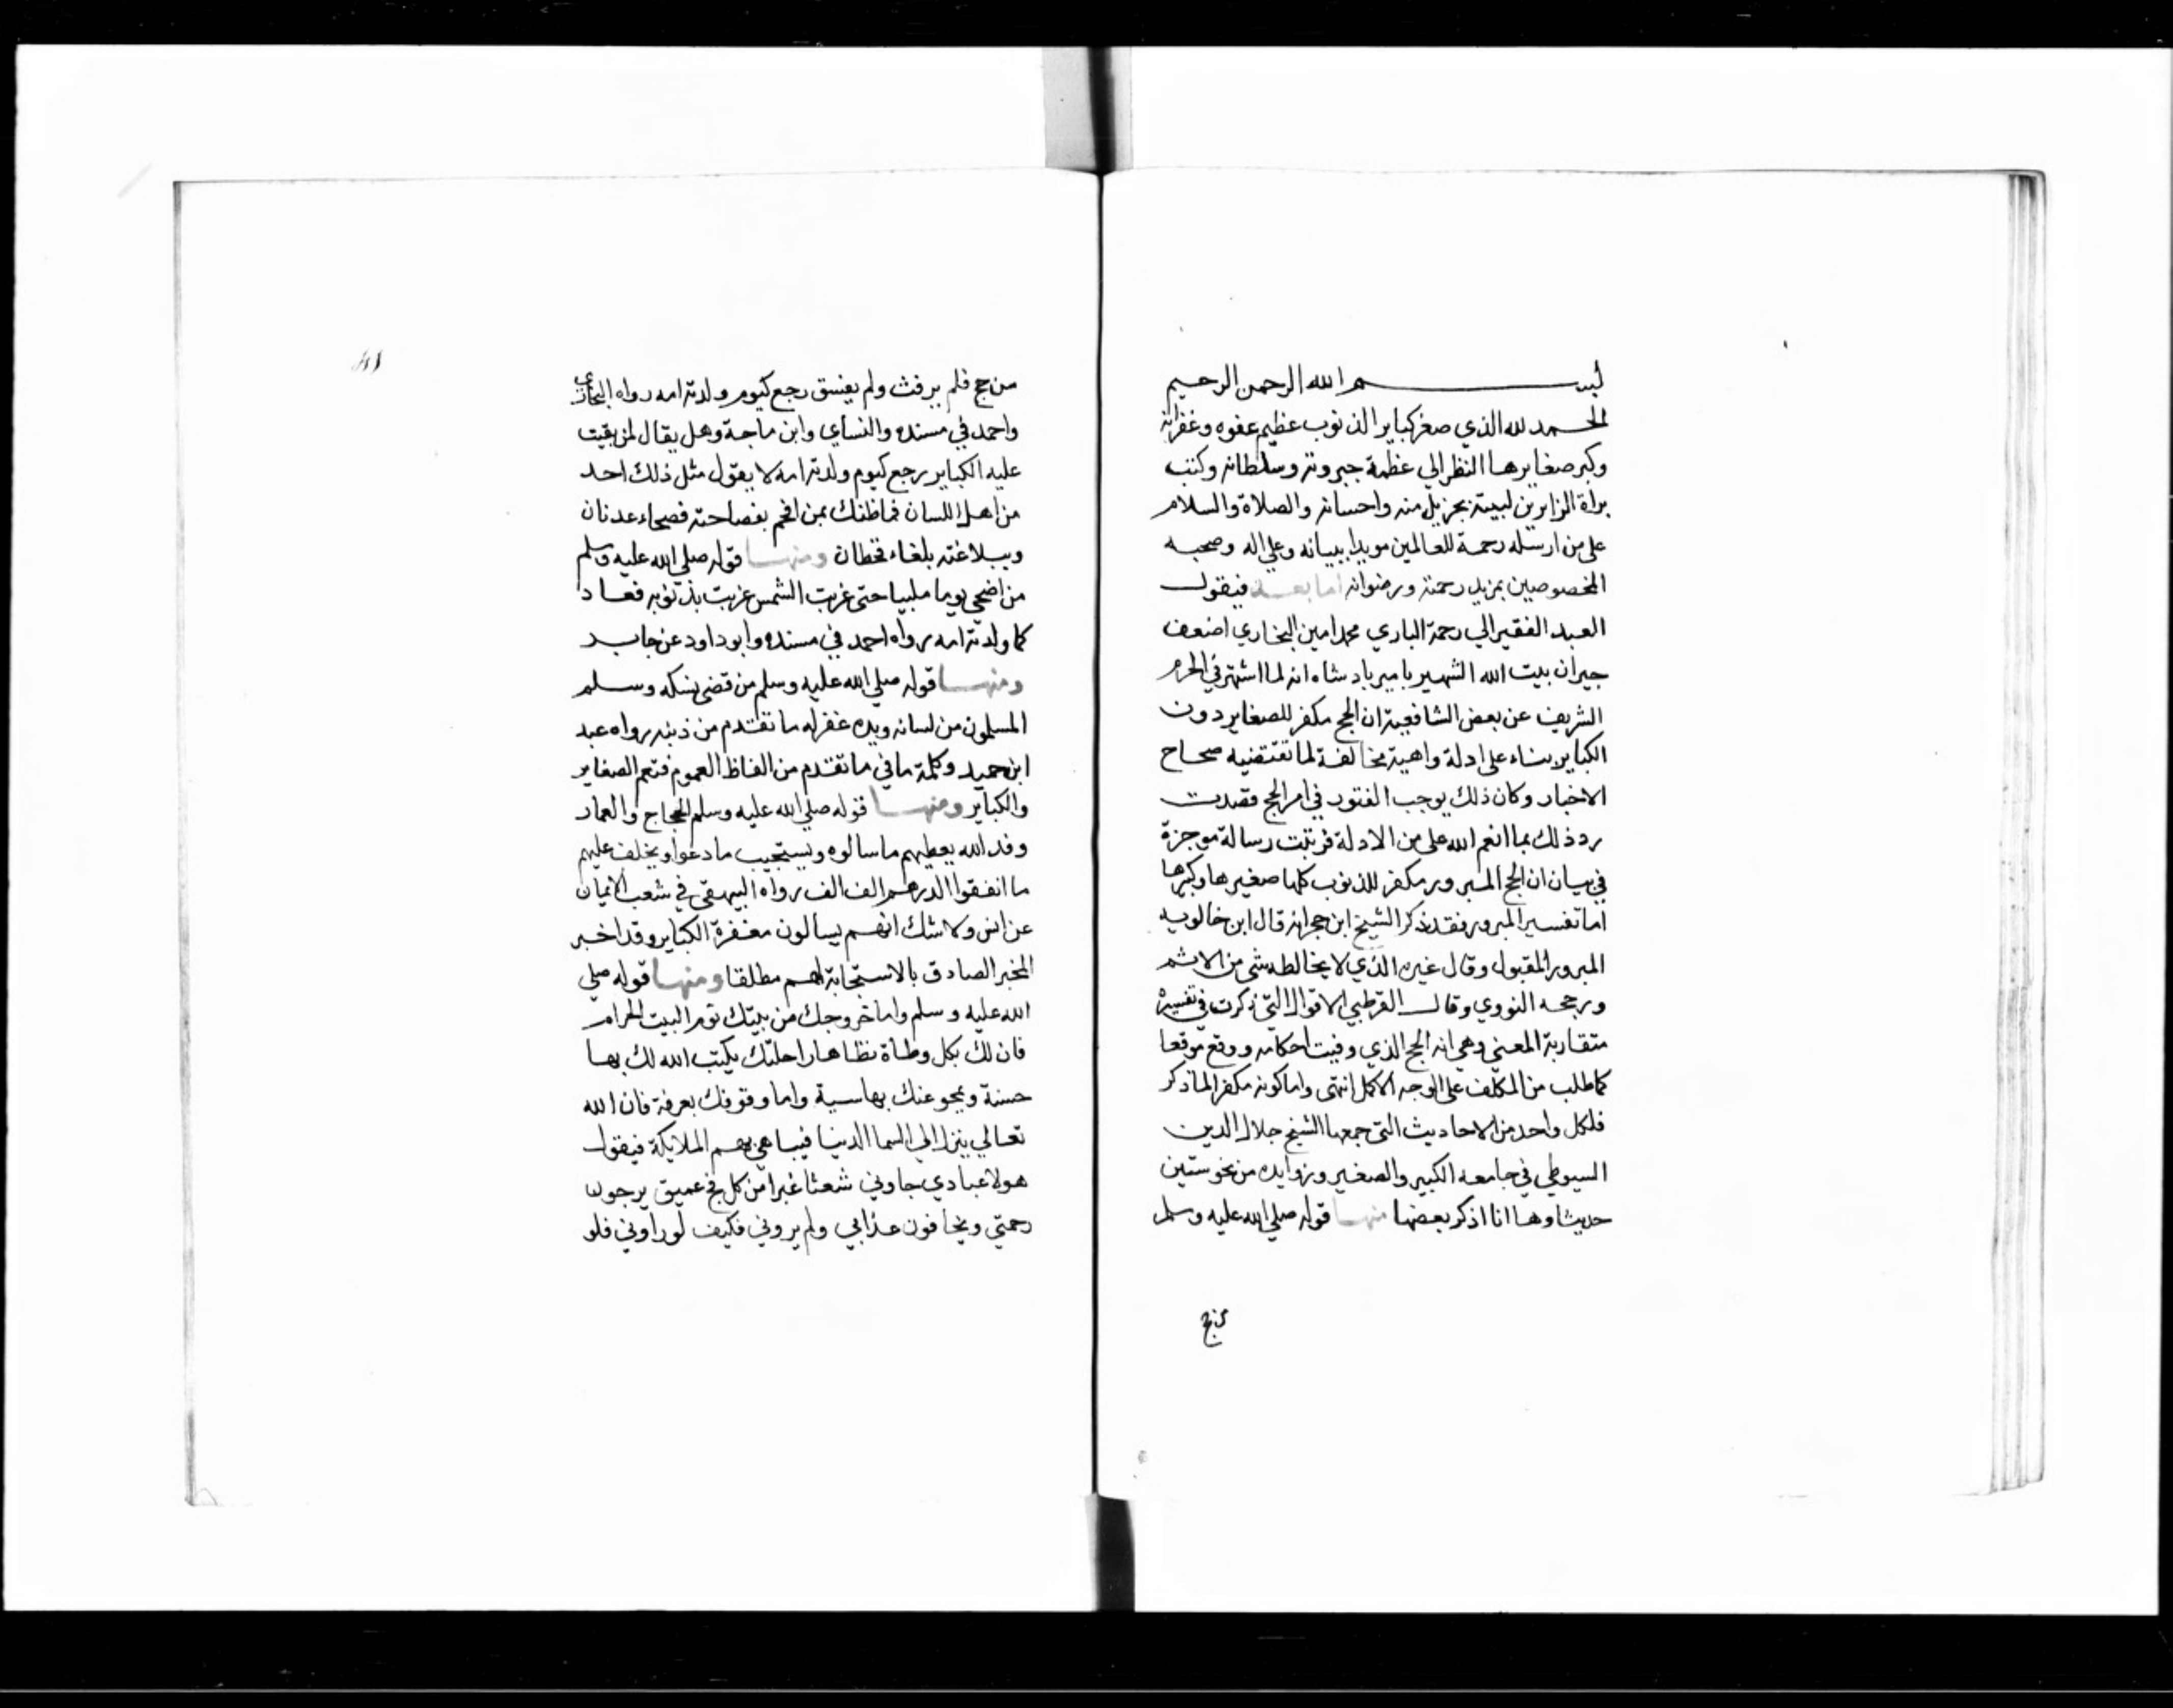 بسم الله الرحمن الرحيم
الحمد لله الذي صغر كباير الذنوب عظيم عفوه وغفرانه
وكبر صغايرها النظر الي عظمة جبروته وسلطانه وكتب
براة الزايرين لبيته بجزيل منه واحسانه والصلاة والسلام
على من ارسله رحمة للعالمين مويدا ببيانه وعلي اله وصحبه
المخصوصين بمزيد رحمته ورضوانه اما بعد فيقول
العبد الفقير الي رحمة الباري محمد امين البخاري اضعف
جيران بيت الله الشهير بامير بادشاه انه لما اشتهر في الحرم
الشريف عن بعض الشافعية ان الحج مكفر للصغاير دون
الكباير بناء على ادلة واهية مخالفة لما تقتضيه صحاح
الاخبار وكان ذلك يوجب الفتور في امر الحج قصدت
رد ذلك بما انعم الله علي من الادلة فرتبت رسالة موجزة
في بيان ان الحج المبرور مكفر للذنوب كلها صغيرها وكبيرها
اما تفسير المبرور فقد ذكر الشيخ ابن حجر انه قال ابن خالويه
المبرور المقبول وقال غيره الذي لا يخالطه شي من الاثم
ورجحه النووي وقال القرطبي الاقوال التي ذكرت في تفسيره
متقاربة المعني وهي انه الحج الذي وفيت احكامه ووقع موقعا
كما طلب من المكلف على الوجه الاكمل انتهى واما كونه مكفرا لما ذكر
فلكل واحد من الاحاديث التي جمعها الشيخ جلال الدين
السيوطي في جامعه الكبير والصغير وزوايده من نحو ستين
حديثا وها انا اذكر بعضها منها قوله صلي الله عليه وسلم
من حج
من حج فلم يرفث ولم يفسق رجع كيوم ولدته امه رواه البخاري
واحمد في مسنده والنسأي وابن ماجة وهل يقال لمن بقيت
عليه الكباير رجع كيوم ولدته امه لا يقول مثل ذلك احد
من اهل اللسان فماظنك بمن افحم بفصاحته فصحاء عدنان
وببلاغته بلغاء قحطان ومنها قوله صلي الله عليه وسلم
من اضحي يوما ملبيا حتى غربت الشمس غربت بذنوبه فعاد
كما ولدته امه رواه احمد في مسنده وابوداود عن جابر
ومنها قوله صلي الله عليه وسلم من قضى نسكه وسلم
المسلمون من لسانه ويده غفر له ما تقدم من ذنبه رواه عبد
ابن حميد وكلمة ما في ما تقدم من الفاظ العموم فتعم الصغاير
والكباير ومنها قوله صلي الله عليه وسلم الحجاج والعمار
وفد الله يعطيهم ما سالوه ويستجيب ما دعوا ويخلف عليهم
ما انفقوا الدرهم الف الف رواه البيهقي في شعب الايمان
عن انس ولا شك انهم يسالون مغفرة الكباير وقد اخبر
المخبر الصادق بالاستجابة لهم مطلقا ومنها قوله صلي
الله عليه وسلم واما خروجك من بيتك تؤم البيت الحرام
فان لك بكل وطاة تطاها راحلتك يكتب الله لك بها
حسنة ويمحو عنك بها سيية واما وقوفك بعرفة فان الله
تعالي ينزل الي السما الدنيا فيباهي بهم الملايكة فيقول
هولا عبادي جاوني شعثا غبرا من كل فج عميق يرجون
رحمتي ويخافون عذابي ولم يروني فكيف لو راوني فلو